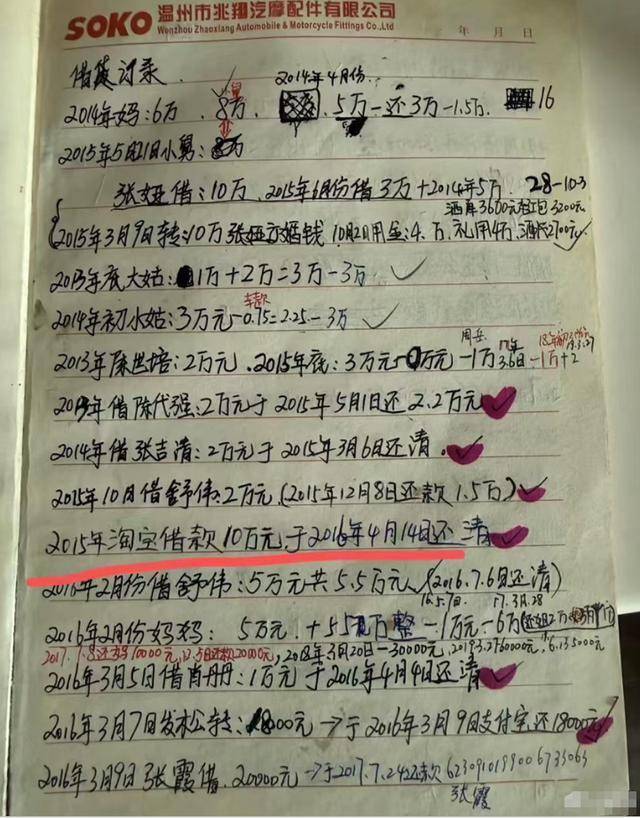 SOKO 温州市兆翔汽摩配件有限公司
Wenzhou Zhaoxiang Automobile & Motorcycle Fittings Co.,Ltd
年 月 日
借贷记录. 2014年4月份
2014年妈:6万. 8万. 5万-还3万-1.5万. 16
2015年5月21日小舅:8万
张娅借:10万、2015年6月份借3万+2014年5万. 28-10-3
酒席3600元红包3200元
2015年3月9日转:10万张娅 婚钱 10月2日用金:4.万.礼用4万.酒代2700元
2013年夜大姑:1万+2万=3万-3万
车款
2014年初小姑:3万元-0.75=2.25-3万
2013年 世培:2万元.2015年底:3万元- 万元-1万 -1万+2
年借陈代强:2万元于2015年5月1日还2.2万元
2014年借张吉清:2万元于2015年3月6日还清.
2015年10月借舒伟:2万元(2015年12月8日还款1.5万)
2015年淘宝借款10万元于2016年4月14日还清
2016年2月份借舒伟:5万元共5.5万元(2016.7.6日还清)
16.5.7日. 17.3月.28
2016年2月份妈妈: 5万元+5万整-1万元-6万
2017.1.8还妈10000元,12.5日还款20000元,2018年3月20日-30000元,2019.3.27 60000元,
2016年3月5日借肖丹丹:1万元于2016年4月4日还清
2016年3月7日发林公转:18000元→于2016年3月9日支付宝还18000元
2016年3月9日张霞借.20000元→于2017.7.24还款6230910199006733063
张霞